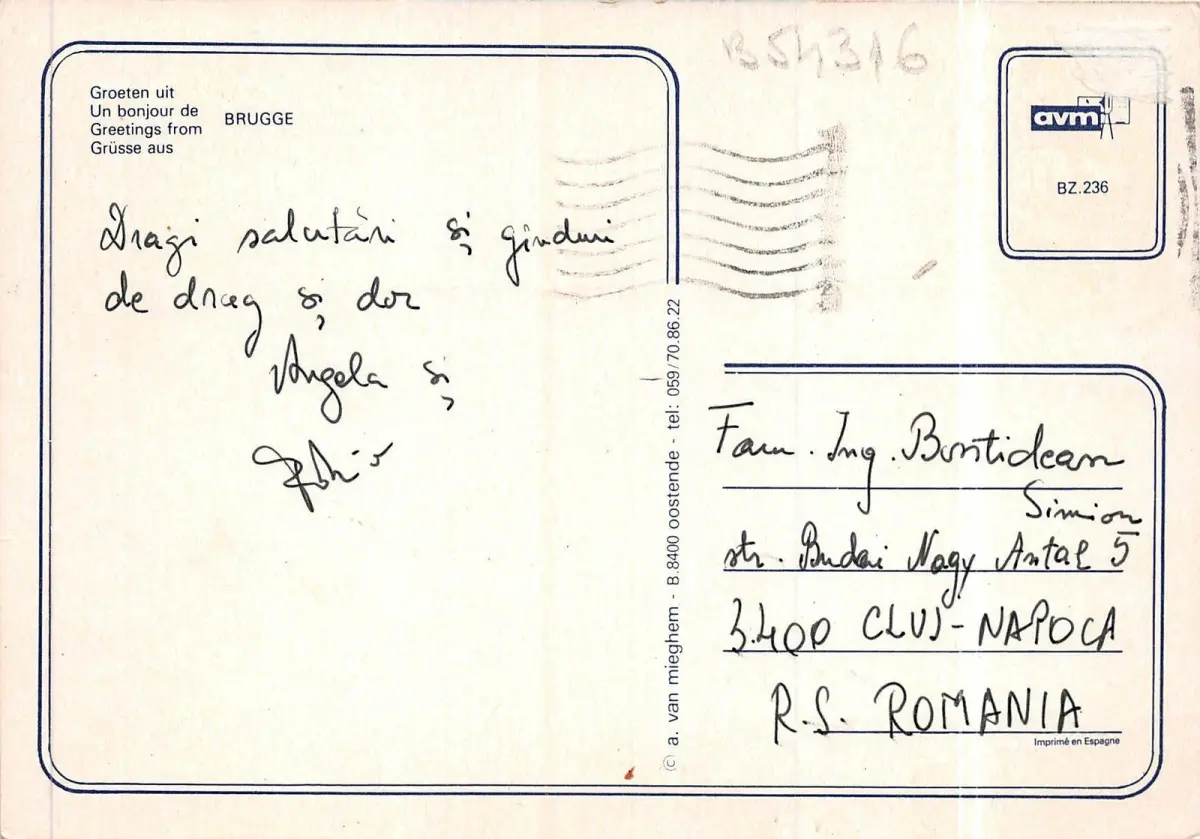 B54316
Groeten uit
Un bonjour de
Greetings from
Grüsse aus
BRUGGE
avm
BZ.236
Dragi salutări și gînduri
de drag și dor
Angela și
© a. van mieghem - B.8400 oostende - tel: 059/70.86.22
Fam. Ing. Bontidean
Simion
str. Budai Nagy Antal 5
3400 CLUJ-NAPOCA
R.S. ROMANIA
Imprimé en Espagne